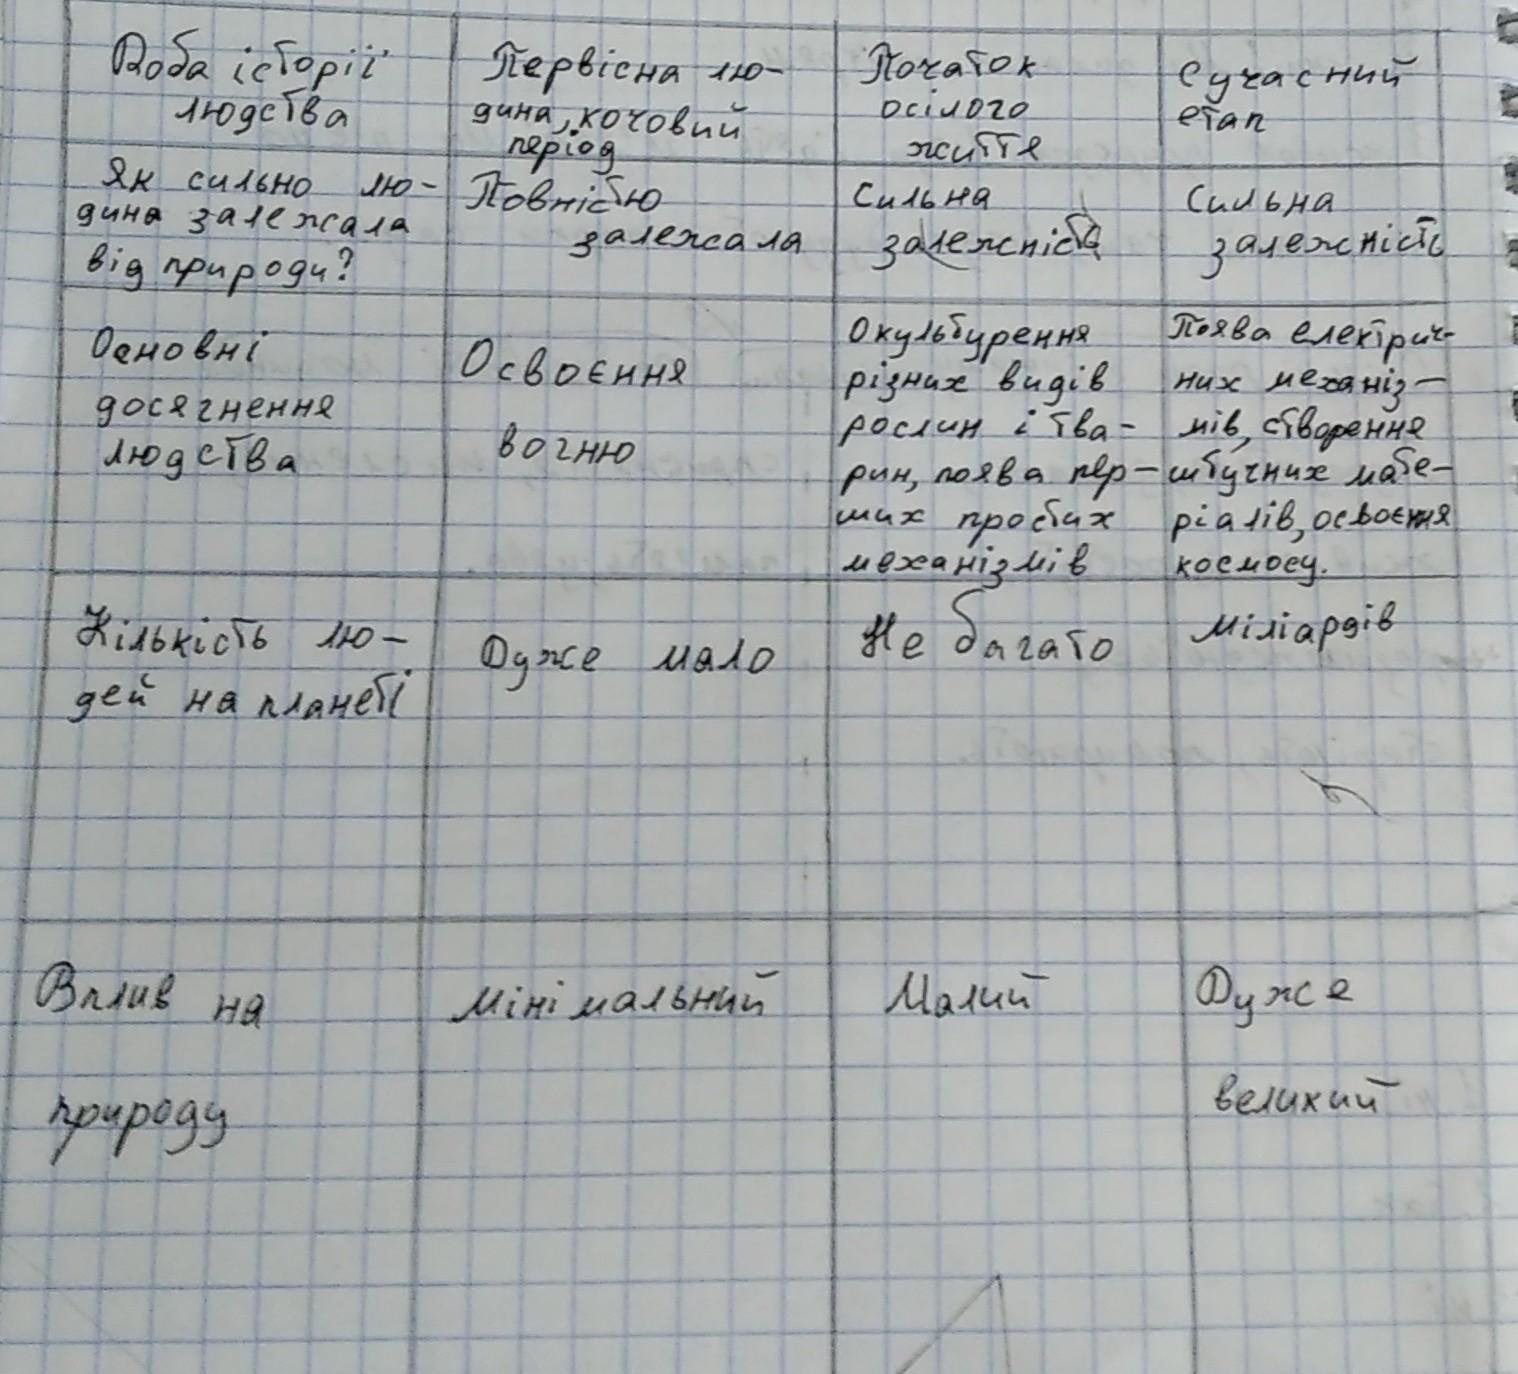 Доба історії
людства
Первісна лю-
дина, кочовий
період
Початок
осілого
життя
Сучасний
етап
Як сильно лю-
дина залежала
від природи?
Повністю
залежала
Сильна
залежність
Сильна
залежність
Основні
досягнення
людства
Освоєння
вогню
Окультурення
різних видів
рослин і тва-
рин, поява пер-
ших простих
механізмів
Поява електрич-
них механіз-
мів, створення
штучних мате-
ріалів, освоєння
космосу.
Кількість лю-
дей на планеті
Дуже мало
Не багато
Міліардів
Вплив на
природу
Мінімальний
Малий
Дуже
великий